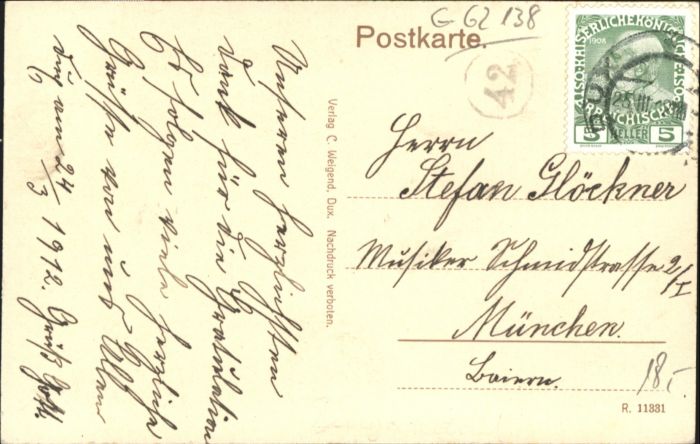 G 62 138
Postkarte.
42
KAISERLICHE KÖNIGLICHE
1908
5 HELLER 5
Herrn
Stefan Glöckner
Musiker Schmidstrasse 2/I
München.
Baiern.
18,-
R. 11331
Verlag C. Weigend, Dux. Nachdruck verboten.
Unseren herzlichsten
Dank für die Gratulation
Es folgen viele herzliche
Grüße von uns Allen
Dux am 24/3 1912. Grüß Gott.